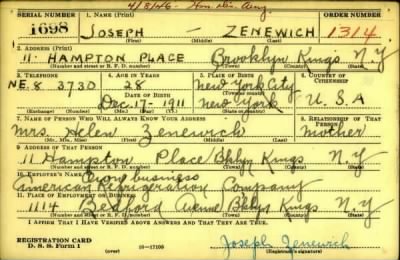 4/8/46 - Hon. Dis. Army
SERIAL NUMBER 1. NAME (Print) ORDER NUMBER
1698 JOSEPH — ZENEWICH 1314
(First) (Middle) (Last)
2. ADDRESS (Print)
11 HAMPTON PLACE Brooklyn Kings N.Y
(Number and street or R. F. D. number) (Town) (County) (State)
3. TELEPHONE 4. AGE IN YEARS 5. PLACE OF BIRTH 6. COUNTRY OF CITIZENSHIP
28 New York City
NE. 8 3730 DATE OF BIRTH (Town or county)
Dec. 17, 1911 New York U.S.A
(Exchange) (Number) (Mo.) (Day) (Yr.) (State or country)
7. NAME OF PERSON WHO WILL ALWAYS KNOW YOUR ADDRESS 8. RELATIONSHIP OF THAT PERSON
Mrs. Helen Zenewich mother
(Mr., Mrs., Miss) (First) (Middle) (Last)
9. ADDRESS OF THAT PERSON
11 Hampton Place Bklyn Kings N.Y
(Number and street or R. F. D. number) (Town) (County) (State)
10. EMPLOYER'S NAME Own business
American Refrigeration Company
11. PLACE OF EMPLOYMENT OR BUSINESS
1114 Bedford Avenue Bklyn Kings N.Y
(Number and street or R. F. D. number) (Town) (County) (State)
I AFFIRM THAT I HAVE VERIFIED ABOVE ANSWERS AND THAT THEY ARE TRUE.
REGISTRATION CARD
D. S. S. FORM 1 16—17105 Joseph Zenewich
(Registrant's signature)